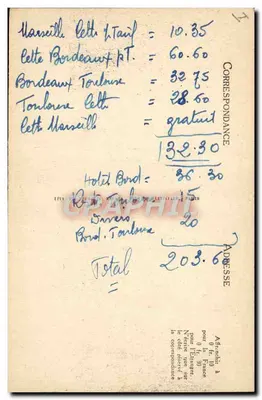 Marseille Cette ½ Tarif = 10.35
Cette Bordeaux pT. = 60.60
Bordeaux Toulouse = 32 75
Toulouse Cette = 28.60
Cette Marseille = gratuit
132.30
Hotel Bord= 36.30
Toulouse 15
Divers 20
Bord. Toulouse
Total 203.60
=
CORRESPONDANCE
ADRESSE
Affranchir à
0 fr. 10
pour la France
0 fr. 30
pour l'Étranger.
N'écrire que sur
le côté réservé à
la correspondance